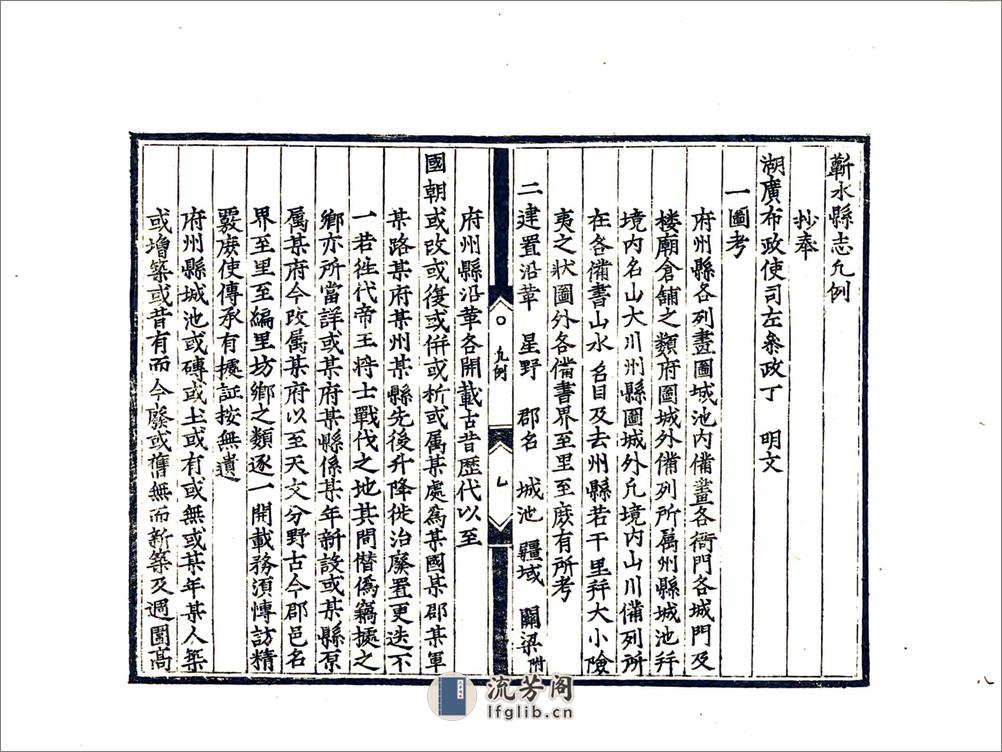 蘄水縣志凢例
抄奉
湖廣布政使司左叅政丁　明文
一圖考
府州縣各列畫圖城池内備畫各衙門各城門及
楼廟倉舖之類府圖城外備列所属州縣城池幷
境内名山大川州縣圖城外凢境内山川備列所
在各備書山水名目及去州縣若干里幷大小險
夷之狀圖外各備書界至里至庻有所考
二建置沿革　星野　郡名　城池　疆域　關梁附
府州縣沿革各開載古昔歴代以至
國朝或改或復或併或析或属某處為某國某郡某軍
某路某府某州某縣先後升降徙治廢置更迭不
一若徃代帝王将士戰伐之地其間僣僞竊據之
鄉亦所當詳或某府某縣係某年新設或某縣原
属某府今改属某府以至天文分野古今郡邑名
界至里至編里坊鄉之類逐一開載務須愽訪精
覈庻使傳承有據証按無遺
府州縣城池或磚或土或有或無或某年某人築
或增築或昔有而今廢或舊無而新築及週圍高
凢例
流芳阁
lfglib.cn